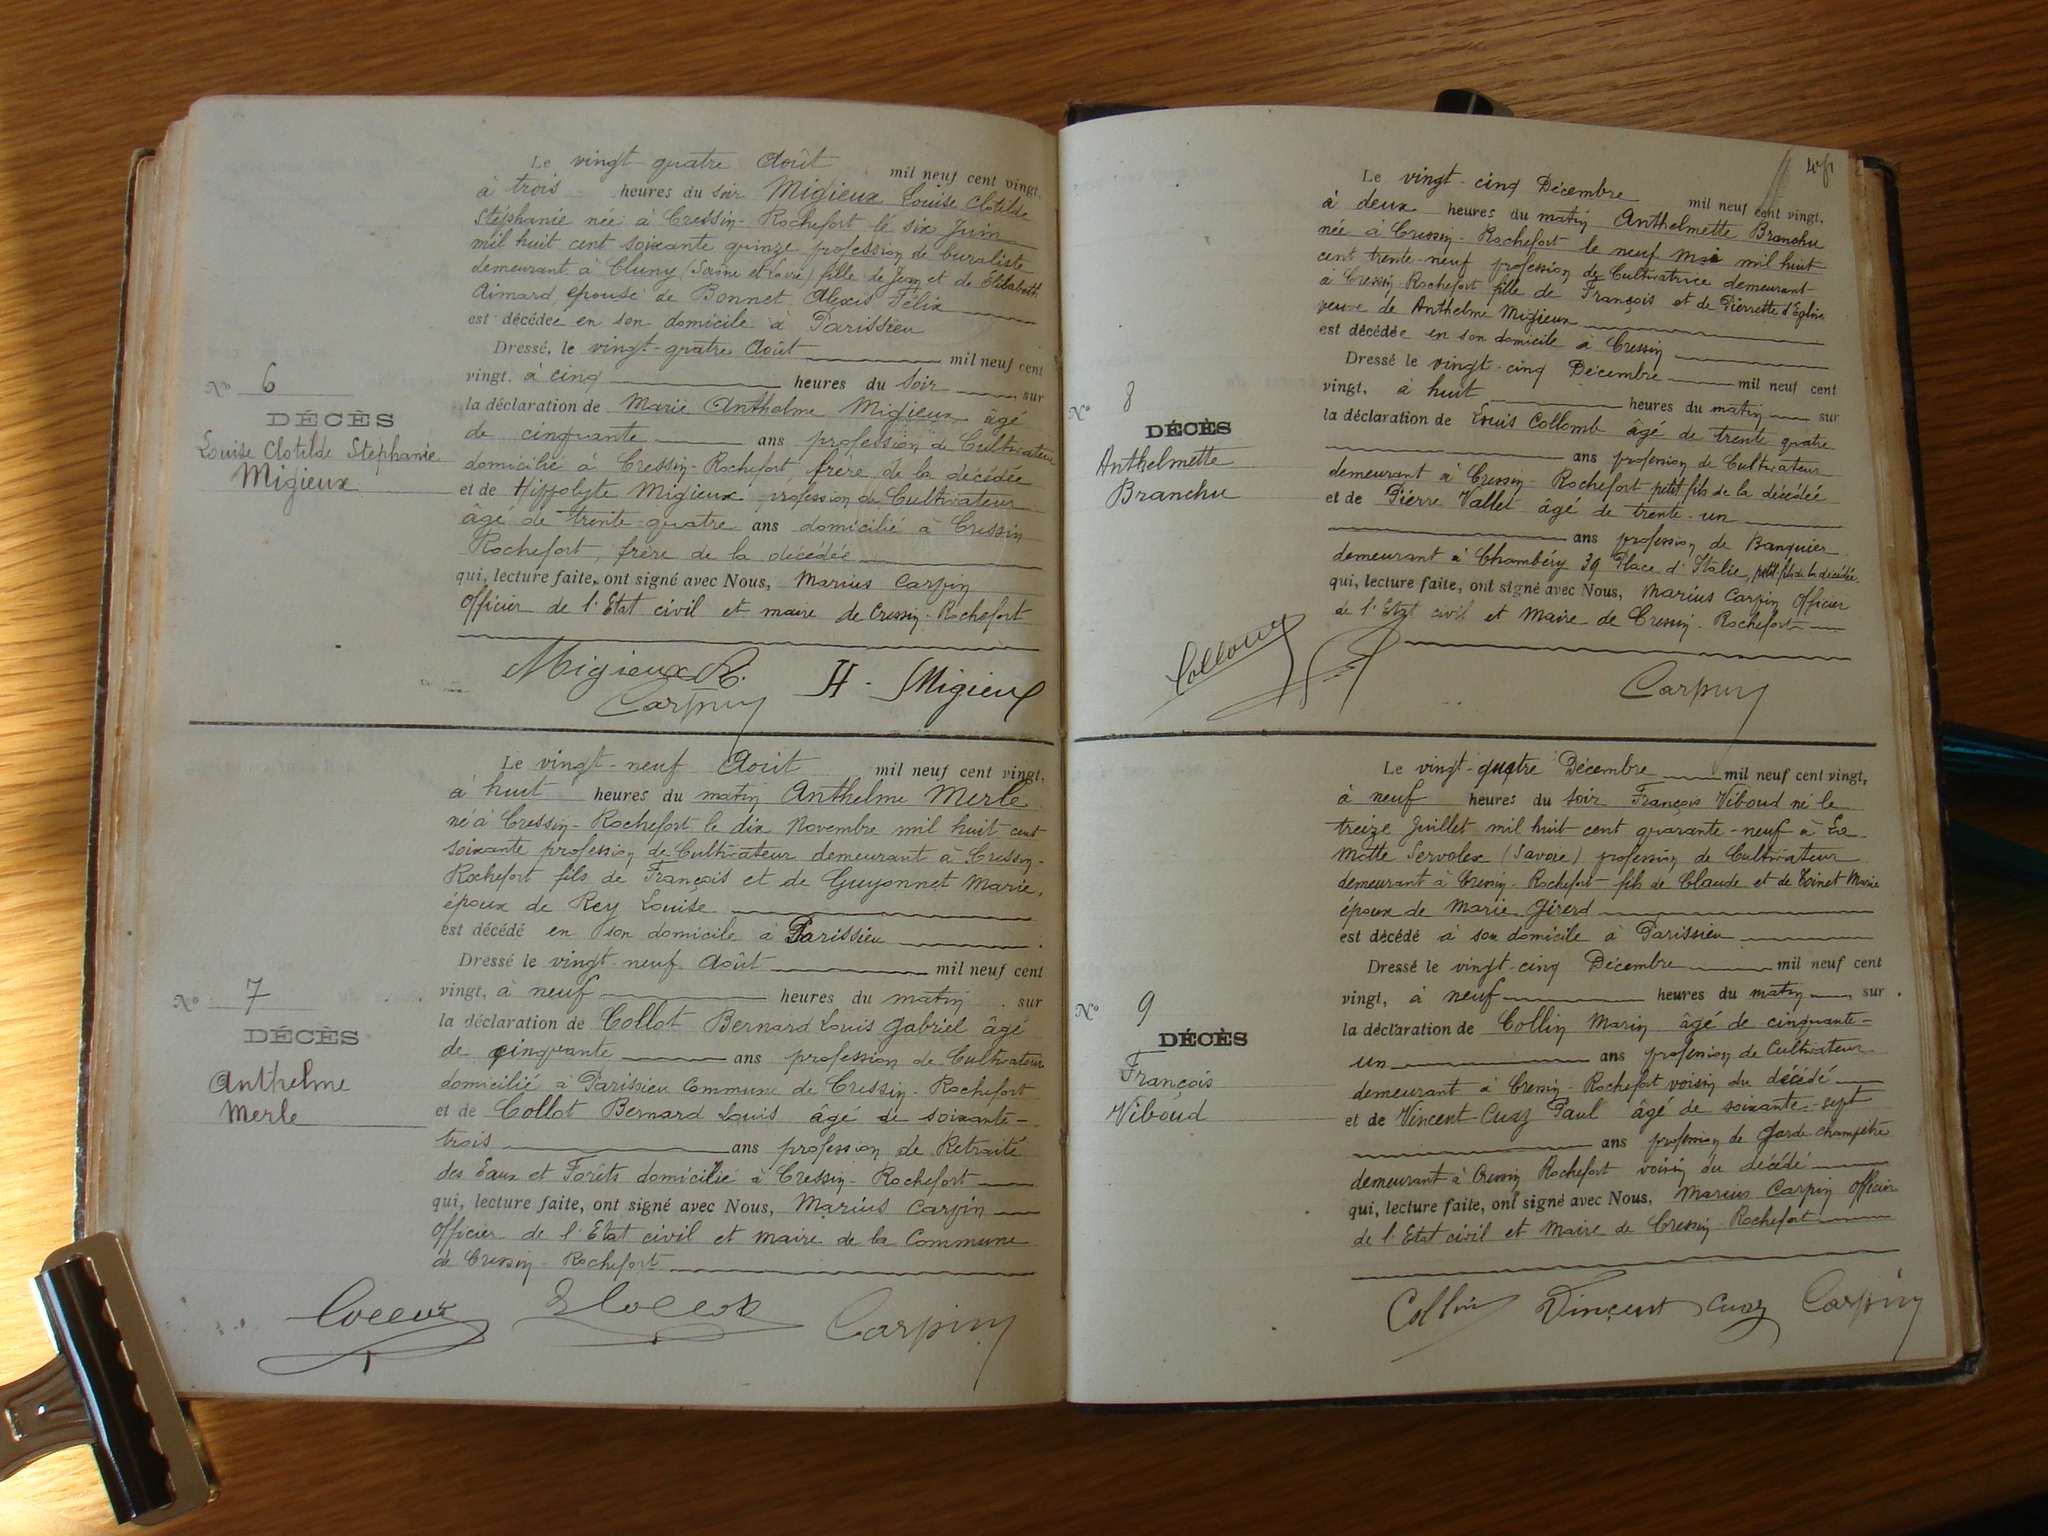 Le vingt-quatre Août mil neuf cent vingt,
à trois heures du soir Migieux Louise Clotilde
Stéphanie née à Cressin-Rochefort le six Juin
mil huit cent soixante quinze profession de buraliste
demeurant à Cluny (Saône et Loire) fille de Jean et de Elisabeth
Aimard, épouse de Bonnet Alexis Félix
est décédée en son domicile à Parissieu
Dressé, le vingt-quatre Août mil neuf cent
vingt, à cinq heures du soir, sur
la déclaration de Marie Anthelme Migieux âgé
de cinquante ans profession de Cultivateur
domicilié à Cressin-Rochefort, frère de la décédée
et de Hippolyte Migieux profession de Cultivateur
âgé de trente-quatre ans domicilié à Cressin
Rochefort, frère de la décédée
qui, lecture faite, ont signé avec Nous, Marius Carpin
Officier de l'Etat civil et maire de Cressin-Rochefort
No 6
DÉCÈS
Louise Clotilde Stéphanie
Migieux
Migieux R. H-Migieux
Carpin
Le vingt-neuf Août mil neuf cent vingt,
à huit heures du matin Anthelme Merle
né à Cressin-Rochefort le dix Novembre mil huit cent
soixante profession de Cultivateur demeurant à Cressin-
Rochefort fils de François et de Guyonnet Marie,
époux de Rey Louise
est décédé en son domicile à Parissieu
Dressé le vingt-neuf Août mil neuf cent
vingt, à neuf heures du matin, sur
la déclaration de Collot Bernard Louis Gabriel âgé
de cinquante ans profession de Cultivateur
domicilié à Parissieu Commune de Cressin-Rochefort
et de Collot Bernard Louis âgé de soixante-
trois ans profession de Retraité
des Eaux et Forêts domicilié à Cressin-Rochefort
qui, lecture faite, ont signé avec Nous, Marius Carpin
Officier de l'Etat civil et maire de la Commune
de Cressin-Rochefort
No 7
DÉCÈS
Anthelme
Merle
Carpin
Le vingt-cinq Décembre mil neuf cent vingt,
à deux heures du matin Anthelmette Branchu
née à Cressin-Rochefort le neuf Mai mil huit
cent trente-neuf profession de Cultivatrice demeurant
à Cressin-Rochefort fille de François et de Pierrette d'Eglise
veuve de Anthelme Migieux
est décédée en son domicile à Cressin
Dressé le vingt-cinq Décembre mil neuf cent
vingt, à huit heures du matin sur
la déclaration de Louis Collomb âgé de trente quatre
ans profession de Cultivateur
demeurant à Cressin-Rochefort petit fils de la décédée
et de Pierre Vallet âgé de trente-un
ans profession de Banquier
demeurant à Chambéry 39 Place d'Italie, petit fils de la décédée.
qui, lecture faite, ont signé avec Nous, Marius Carpin Officier
de l'Etat civil et Maire de Cressin-Rochefort
No 8
DÉCÈS
Anthelmette
Branchu
Carpin
Le vingt-quatre Décembre mil neuf cent vingt,
à neuf heures du soir François Viboud né le
treize Juillet mil huit cent quarante-neuf à La
Motte Servolex (Savoie) profession de Cultivateur
demeurant à Cressin-Rochefort fils de Claude et de Toinet Marie
époux de Marie Girerd
est décédé à son domicile à Parissieu
Dressé le vingt-cinq Décembre mil neuf cent
vingt, à neuf heures du matin, sur
la déclaration de Collin Marin âgé de cinquante-
un ans profession de Cultivateur
demeurant à Cressin-Rochefort voisin du décédé
et de Vincent Cuaz Paul âgé de soixante-sept
ans profession de garde champêtre
demeurant à Cressin Rochefort voisin du décédé
qui, lecture faite, ont signé avec Nous, Marius Carpin Officier
de l'Etat civil et Maire de Cressin-Rochefort
No 9
DÉCÈS
François
Viboud
Collin Vincent Cuaz Carpin